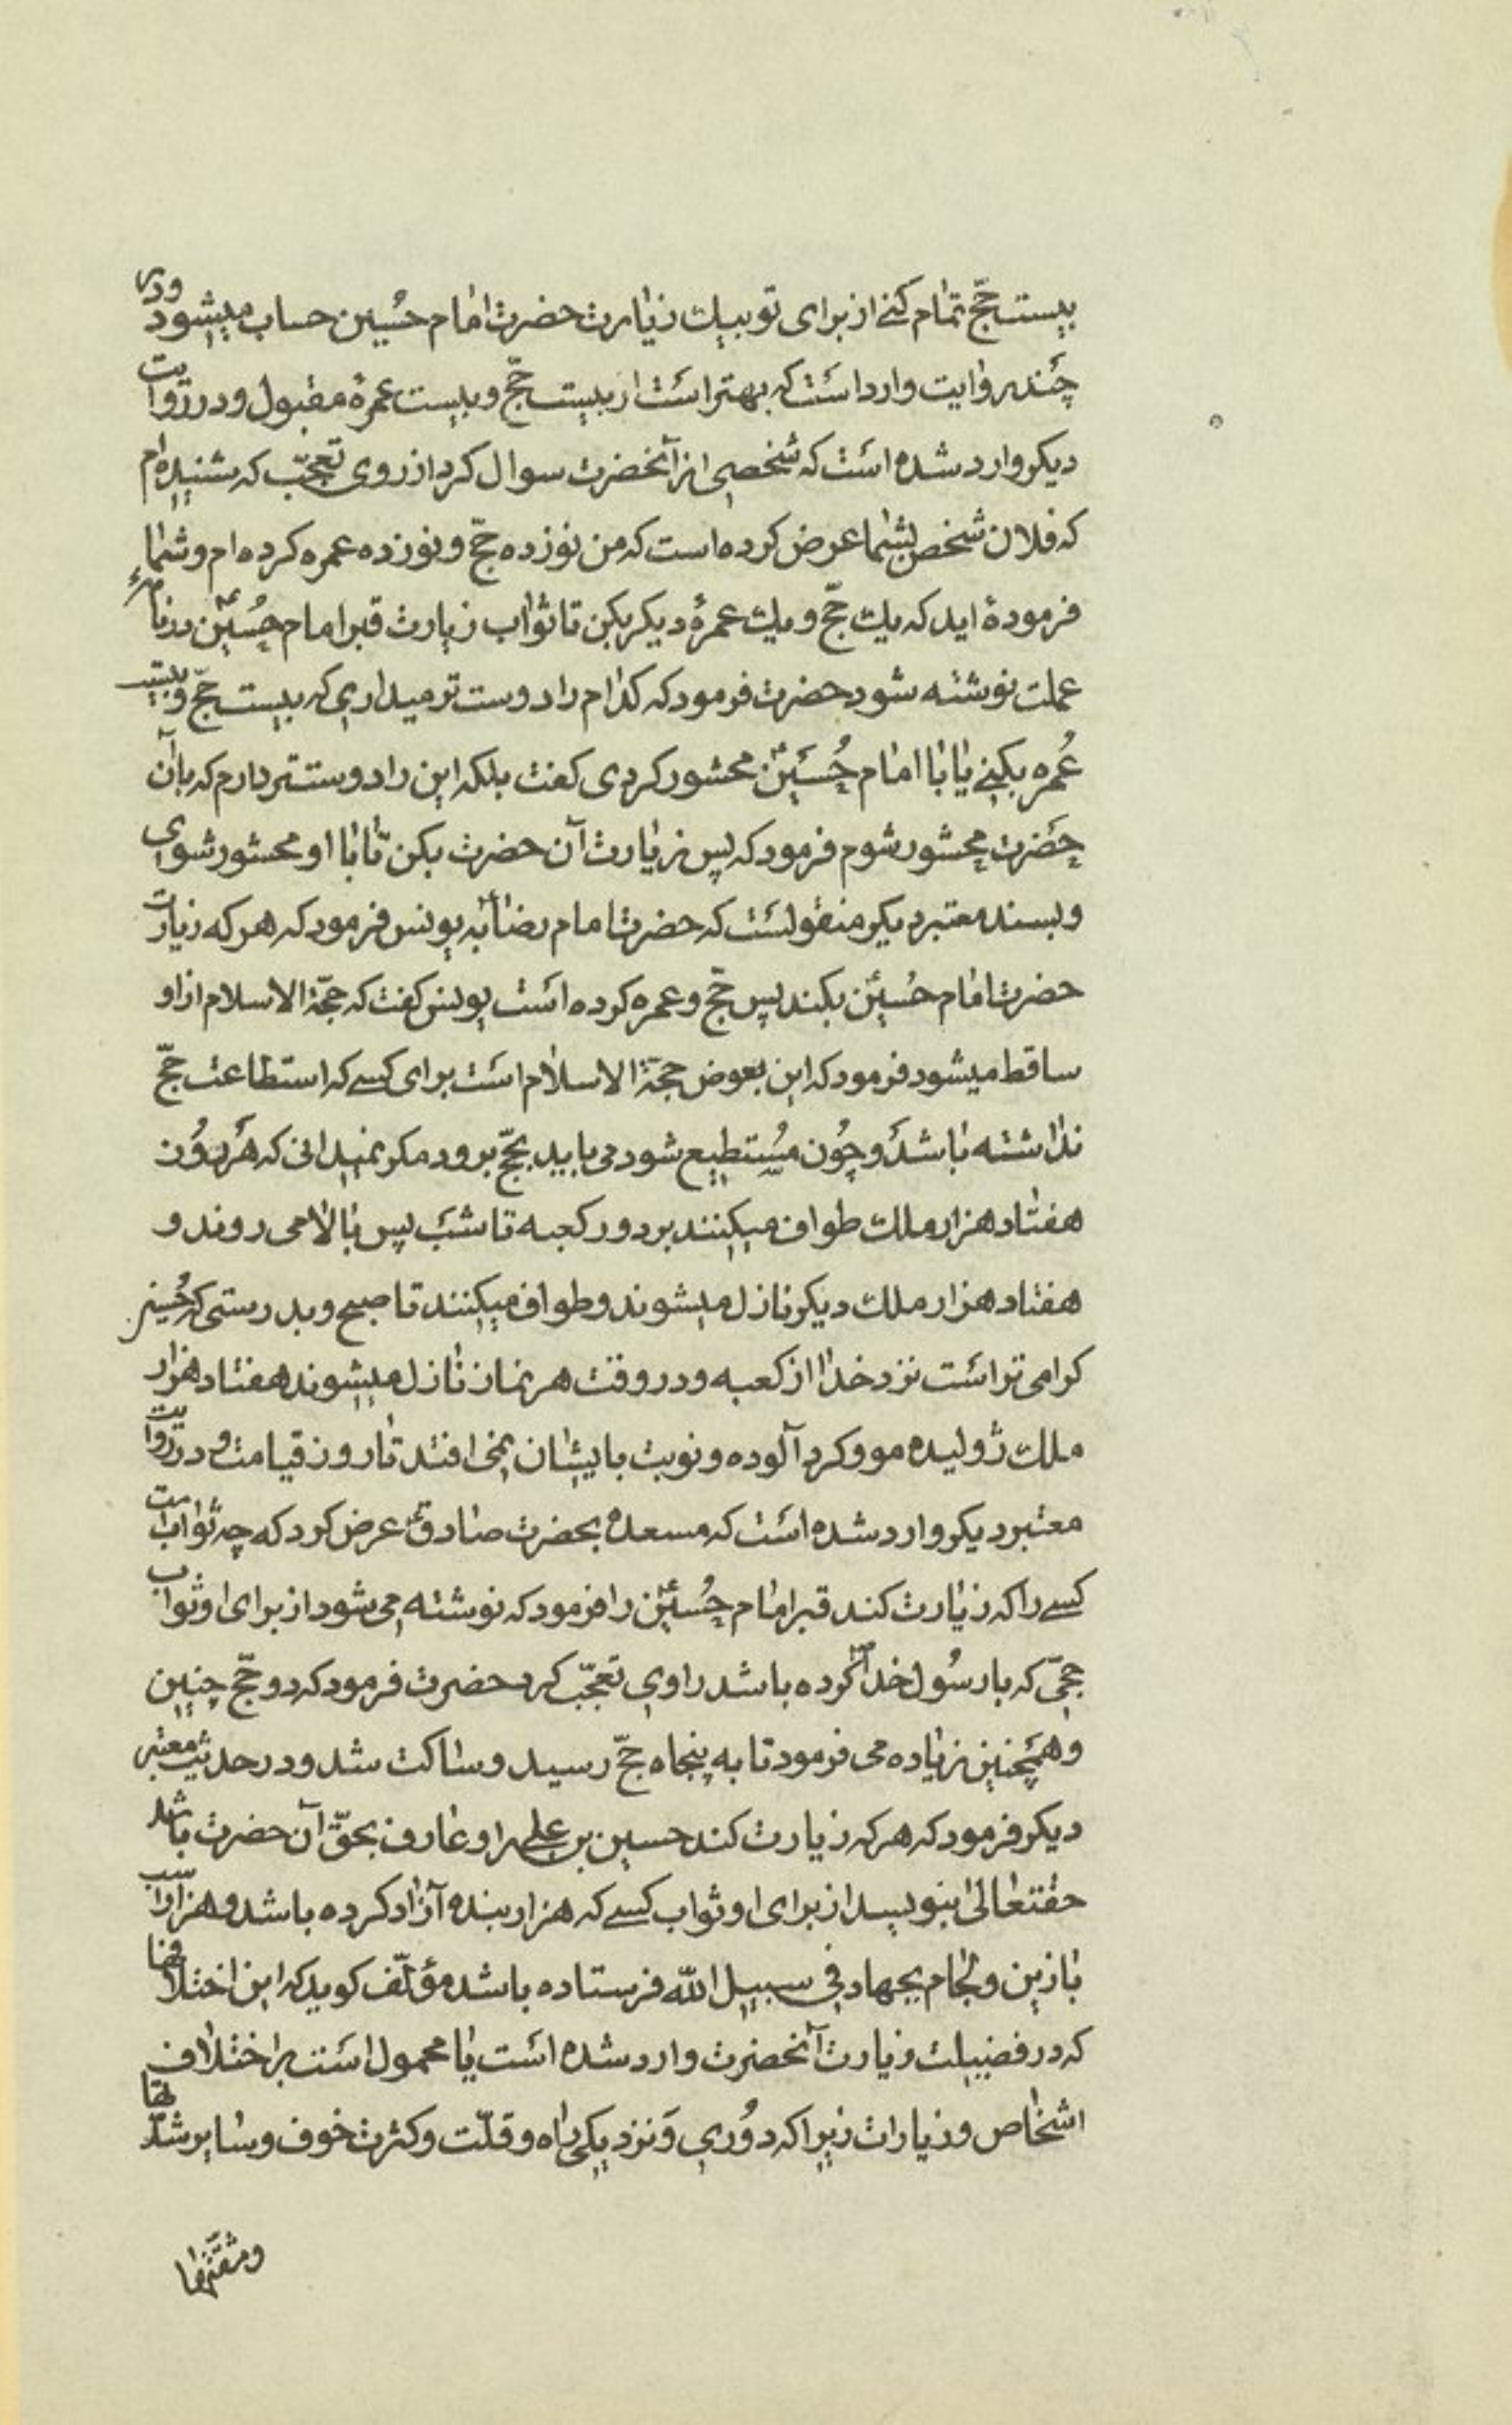 بیست حجّ تمام کنے از برای تو بیك زیارت حضرت امام حُسین حساب میشود ودر
چند روایت وارد است که بهتر است از بیست حجّ و بیست عمرهٔ مقبول و در روایت
دیکر وارد شده است که شخصی از آنحضرت سوال کرد از روی تعجّب که شنیده ام
که فلان شخص بشما عرض کرده است که من نوزده حجّ و نوزده عمره کرده ام و شما
فرمودهٔ اید که یك حجّ و یك عمرهٔ دیکر بکن تا ثواب زیارت قبر امام حُسینؑ در نامهٔ
عملت نوشته شود حضرت فرمود که کدام را دوست تر میداری که بیست حجّ و بیست
عُمره بکنے یا با امام حُسَینؑ محشور کردی کفت بلکه این را دوستتر دارم که بآن
حَضرت محشور شوم فرمود که پس زیارت آن حضرت بکن تا با او محشور شوی
و بسند معتبر دیکر منقولست که حضرت امام رضاؑ به یونس فرمود که هر که زیارت
حضرت امام حُسینؑ بکند پس حجّ و عمره کرده است یونس کفت که حجّة الاسلام از او
ساقط میشود فرمود که این بعوض حجّة الاسلام است برای کسے که استطاعت حجّ
نداشته باشد و چُون مُستطیع شود می باید بحجّ برود مکر نمیدانی که هَر رُوز
هفتاد هزار ملك طواف میکنند بر دور کعبه تا شب پس بالا می روند و
هفتاد هزار ملك دیکر نازل میشوند و طواف میکنند تا صبح و بدرستی که حُسین
کرامی تر است نزد خدا از کعبه و در وقت هر نماز نازل میشوند هفتاد هزار
ملك ژولیده مو و کرد آلوده و نوبت بایشان نمی افتد تا روز قیامت و در روایت
معتبر دیکر وارد شده است که مسعده بحضرت صادقؑ عرض کرد که چه ثواب است
کسے را که زیارت کند قبر امام حُسینؑ را فرمود که نوشته می شود از برای او ثواب
حجّی که با رسُول خداؐ کرده باشد راوی تعجّب کرد حضرت فرمود که دو حجّ چنین
و همچنین زیاده می فرمود تا به پنجاه حجّ رسید و ساکت شد و در حدیث معتبر
دیکر فرمود که هر که زیارت کند حسین بن علی را و عارف بحقّ آن حضرت باشد
حقتعالی بنویسد از برای او ثواب کسے که هزار بنده آزاد کرده باشد و هزار اسب
با زین و لجام بجهاد فی سبیل اللّه فرستاده باشد مؤلّف کوید که این اختلافها
که در فضیلت زیارت آنحضرت وارد شده است یا محمول است بر اختلاف
اشخاص و زیارات زیرا که دُوری وَ نزدیکی راه و قلّت و کثرت خوف و سایر شدّتها
و مشقّتها